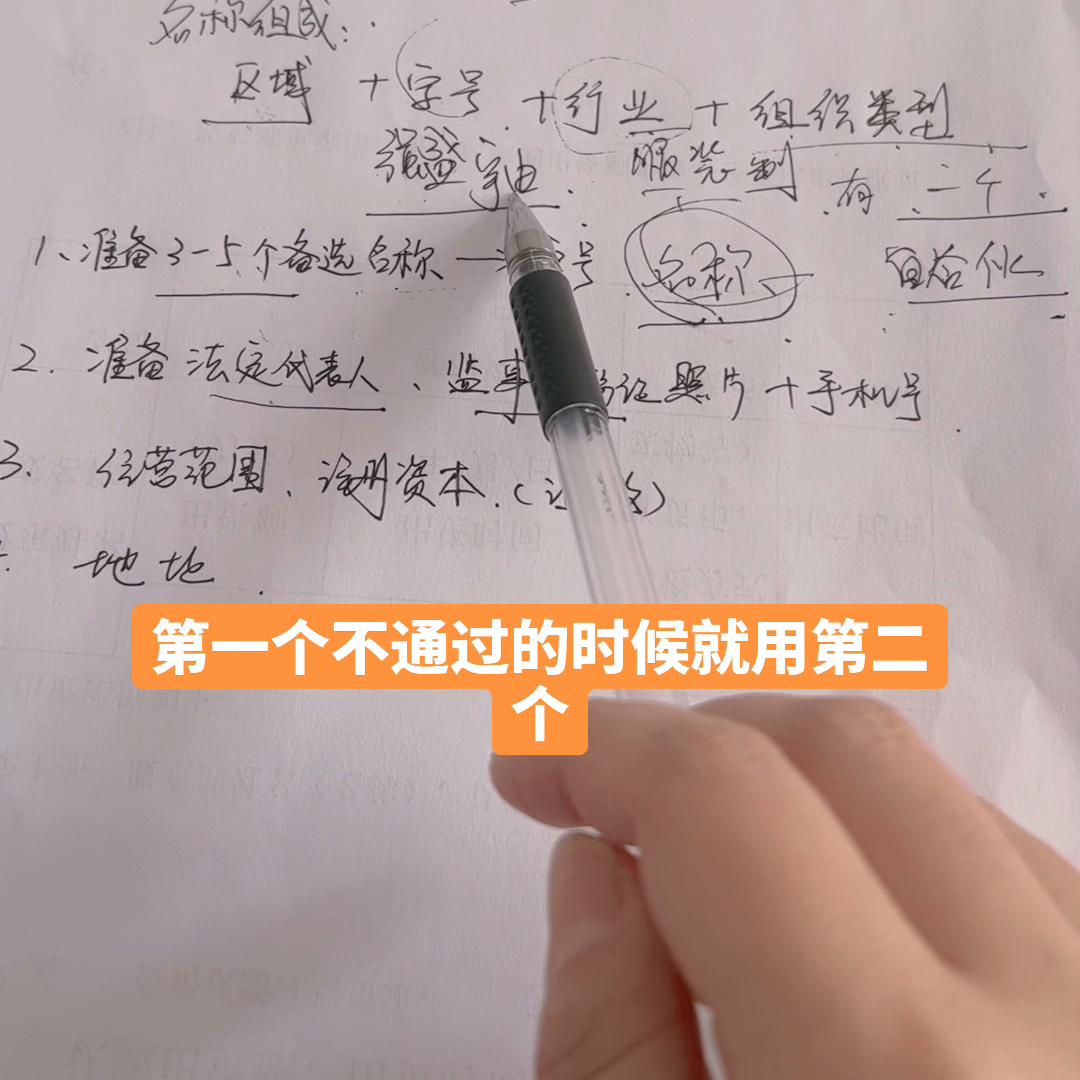 名称组成:
区域 + 字号 + 行业 + 组织类型
强盛 宇宙 服装制 有一个
1、准备3-5个备选名称 一 号 名称
2. 准备 法定代表人、监事 证照片+手机号
3. 经营范围、注册资本.
地址
第一个不通过的时候就用第二
个